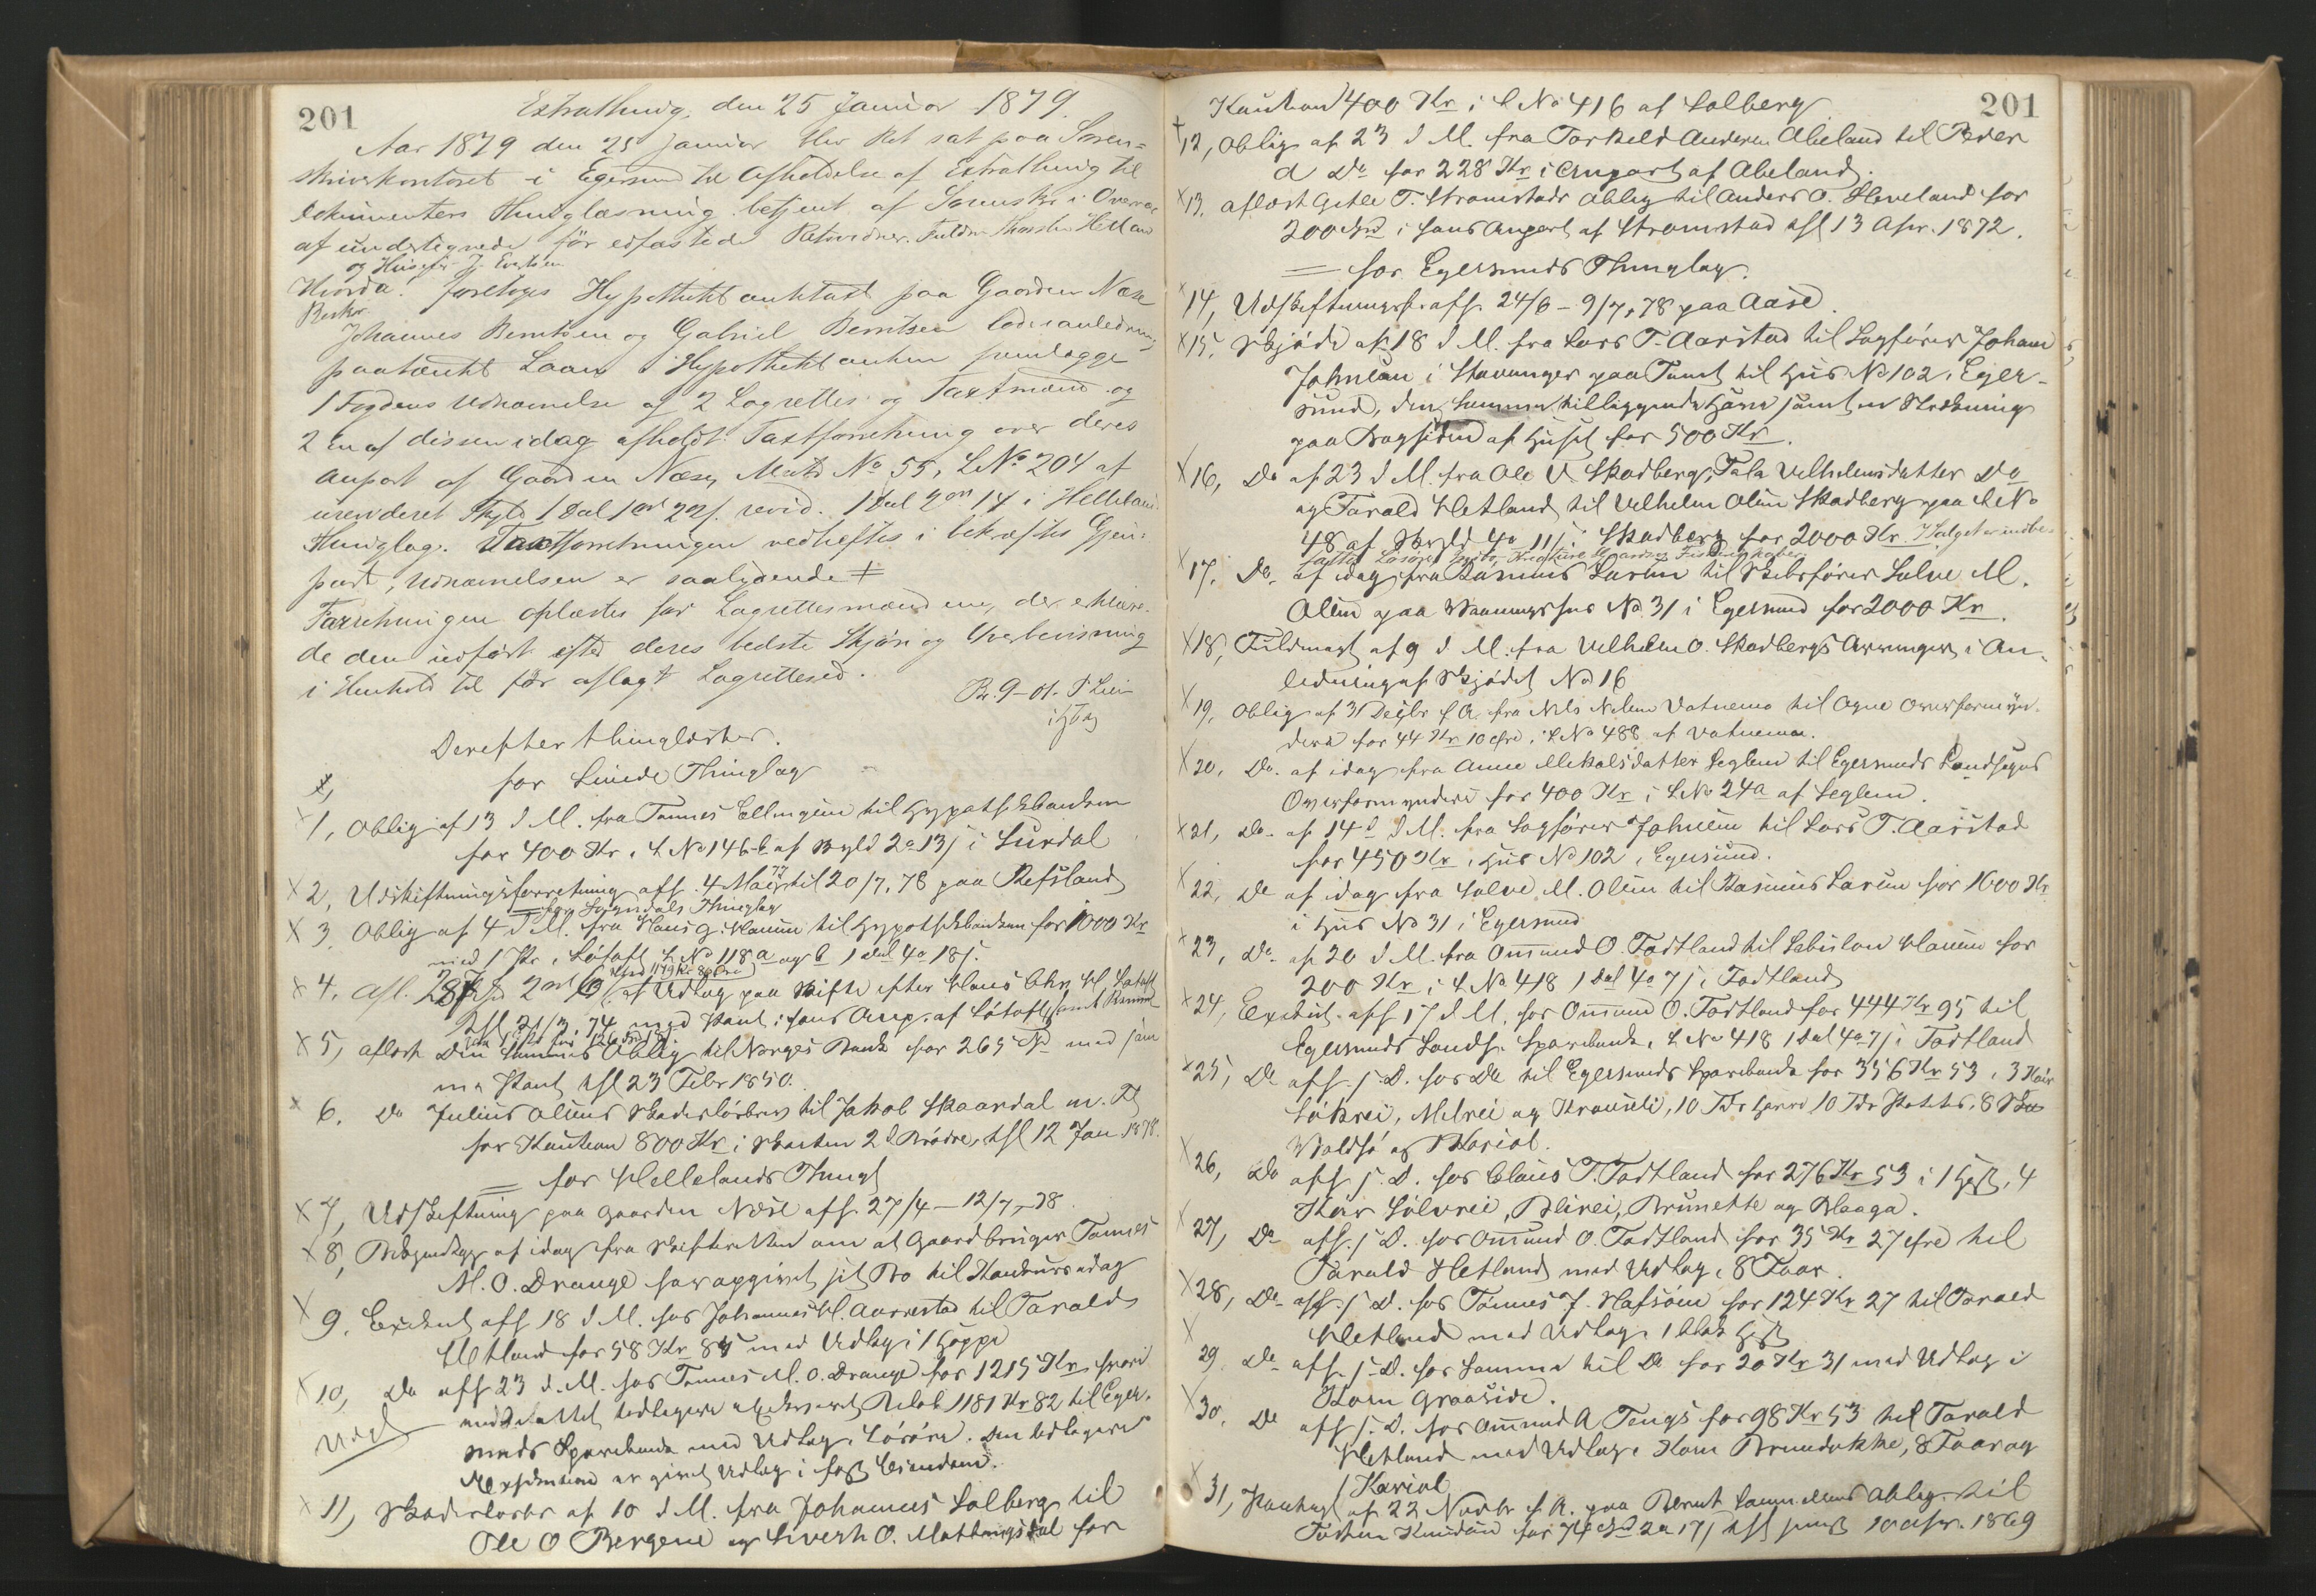 201
Extrathing, den 25 Januar 1879.
Aar 1879 den 25 Januar blev Ret sat paa Soren-
skriverkontoret i Egersund til Afholdelse af Extrathing til
Dokumenters Thinglæsning betjent af Sorenskr. i Overvær
af undertegnede før edfæstede Retsvidner. Fuldm Thorsten Hetland
og Husejer J. Evertsen
Hvorda: foretoges Hypothektanttaxt paa Gaarden Næse
Johannes Berntsen og Gabriel Berntsen lode i anledning
paatænkt Laan i Hypothekbanken fremlægge
1 Fogdens Udnævnelse af 2 Lagrettes og Taxtmænd og
2 En af dissen idag afholdt Taxtforretning over deres
Anpart af Gaarden Næse, Matr No 55, LNo 204 af
urevideret Skyld 1 Dal 1 ort 2 s/. revid. 1 Dal 4 ort 14 i Hellelands
Thinglag. Taxtforretningen vedheftes i bekræftet Gjen-
part, Udnævnelsen er saalydende ǂ
Forretningen oplæstes for Lagrettesmændene, der erklære-
de den udført efter deres bedste Skjøn og Overbevisning
i Henhold til før aflagt Lagrettesed.
Derefter thinglæstes.
for Lunde Thinglag
1, Oblig af 13 d M. fra Tønnes Ellingsen til Hypothekbanken
for 400 Kr. i L No 146 b af Skyld 2 o 13 s i Surdal
2, Udskiftningsforretning aff. 4 Mai 77 til 20/7, 78 paa Refsland
= for Sogndals Thinglag
3, Oblig af 4 d M. fra Hans G. Hanssen til Hypothekbanken for 1000 Kr
med 1 Pr. i Løtoft L No 118 a og b 1 Dal 4 o 18 s.
4. Afl. Udlæg paa Skifte efter Claus Chr H. Løtoft
5, aflæst Den Sammes Oblig til Norges Bank for 265 Sp med sam
me Pant tsl 23 Febr 1850.
6. Do Julius Olsens Skadesløsbrev til Jakob Skaardal m. Fl
for Kaution 800 Kr. i Skøiten 2 de Brødre, tsl 12 Jan 1878.
= for Hellelands Thingl
7, Udskiftning paa Gaarden Næse aff. 27/4 – 12/7, 78
8, Bekjendtgj af idag fra Skifteretten om at Gaardbruger Tønnes
M. O. Drange har opgivet sit Bo til Konkurs idag
9. Exekut aff 18 d M. hos Johannes H. Aarrestad til Tarald
Hetland for 58 Kr 85 med Udlæg i 1 Hoppe
10, Do aff 23 d. M. hos Tønnes M. O. Drange for 1215 Kr hvori
Beløb 1181 Kr 82 til Eger-
sunds Sparebank med Udlæg i Løsøre. Den tidligere
Exekution er givet Udlæg i fast Eiendom.
11, Skadesløsbr af 10 d M. fra Johannes Solberg til
Ole O Bergene og Sivert O. Mattingsdal for
201
Kaution 400 Kr i L No 416 af Solberg
12, Oblig af 23 d M. fra Torkeld Andersen Abeland til Peder
A Do for 228 Kr i Anpart af Abeland.
13, aflæst Gitle T. Strømstads Oblig til Anders O. Heveland for
200 Spd i hans Anpart af Strømstad tsl 13 Apr. 1872.
= for Egersunds Thinglag.
14, Udskiftningsf. aff. 24/6 – 9/7, 78 paa Aase
15, Skjøde af 18 d M. fra Lars T. Aarstad til Sagfører Johan
Johnsen i Stavanger paa Tomt til Hus No 102 i Eger-
sund, den samme tilliggende Have samt en Strækning
paa Bagsiden af Huset for 500 Kr.
16, Do af 23 d M. fra Ole V. Skadberg, Tala Velhelmsdatter Do
og Tarald Hetland til Velhelm Olsen Skadberg paa L No
48 af Skyld 4 o 11 s i Skadberg for 2000 Kr. I Salget er indbe-
17, Do af idag fra Rasmus Larsen til Skibsfører Salve M.
Olsen paa Vaaningshus No 31 i Egersund for 2000 Kr.
18, Fuldmagt af 9 d M. fra Velhelm O. Skadbergs Arvinger i An-
ledning af Skjødet No 16
19, Oblig af 31 Decbr f A. fra Nils Nilsen Vatnemo til Ogne Overformyn-
deri for 44 Kr 10 Øre, i L No 488 af Vatnemo.
20, Do. af idag fra Anne Mikalsdatter Seglem til Egersunds Landsogns
Overformynderi for 400 Kr i L No 24 a af Seglem.
21, Do. af 14 d M. fra Sagfører Johnsen til Lars T. Aarstad
for 450 Kr i Hus No 102 i Egersund.
22, Do af idag fra Salve M. Olsen til Rasmus Larsen for 1600 Kr
i Hus No 31 i Egersund
23, Do. af 20 d M. fra Ommund O. Tødtland til Sebulon Hansen for
200 Kr i L No 418 1 Dal 4 o 7 s i Tødtland
24, Exekut. aff 17 d M. hos Ommund O. Tødtland for 444 Kr 95 til
Egersunds Lands. Sparebank, i L No 418 1 Dal 4 o 7 s i Tødtland
25, Do aff. s. D. hos Do til Egersunds Sparebank for 356 Kr 53 i 3 Køer
10 Tdr Havre 10 Tdr Potetes, 8 Sk
og 1 Kariol.
26, Do aff. s. D. hos Claus T. Tødtland for 276 Kr 53 i 1 Hest, 4
Køer Sølvrei, Blirei, Brunette og Blaaga.
27, Do aff. s. D. hos Ommund O. Tødtland for 35 Kr 27 Øre til
Tarald Hetland med Udlæg i 8 Faar.
28, Do aff. s. D. hos Tønnes J. Hafsøen for 124 Kr 27 til Tarald
Hetland med Udlæg i 1 blak Hest
29, Do aff. s. D. hos Samme til Do for 20 Kr 31 med Udlæg i
Koen Graaside.
30, Do aff. s. D. hos Ommund A Tengs for 98 Kr 53 til Tarald
Hetland med Udlæg i Koen 8 Faar og
1 Kariol
31, af 22 Novbr f A. paa Bernt Samuelsens Oblig til
Tosten Knudsen for 2 o 17 s tsl 10 Apr. 1869